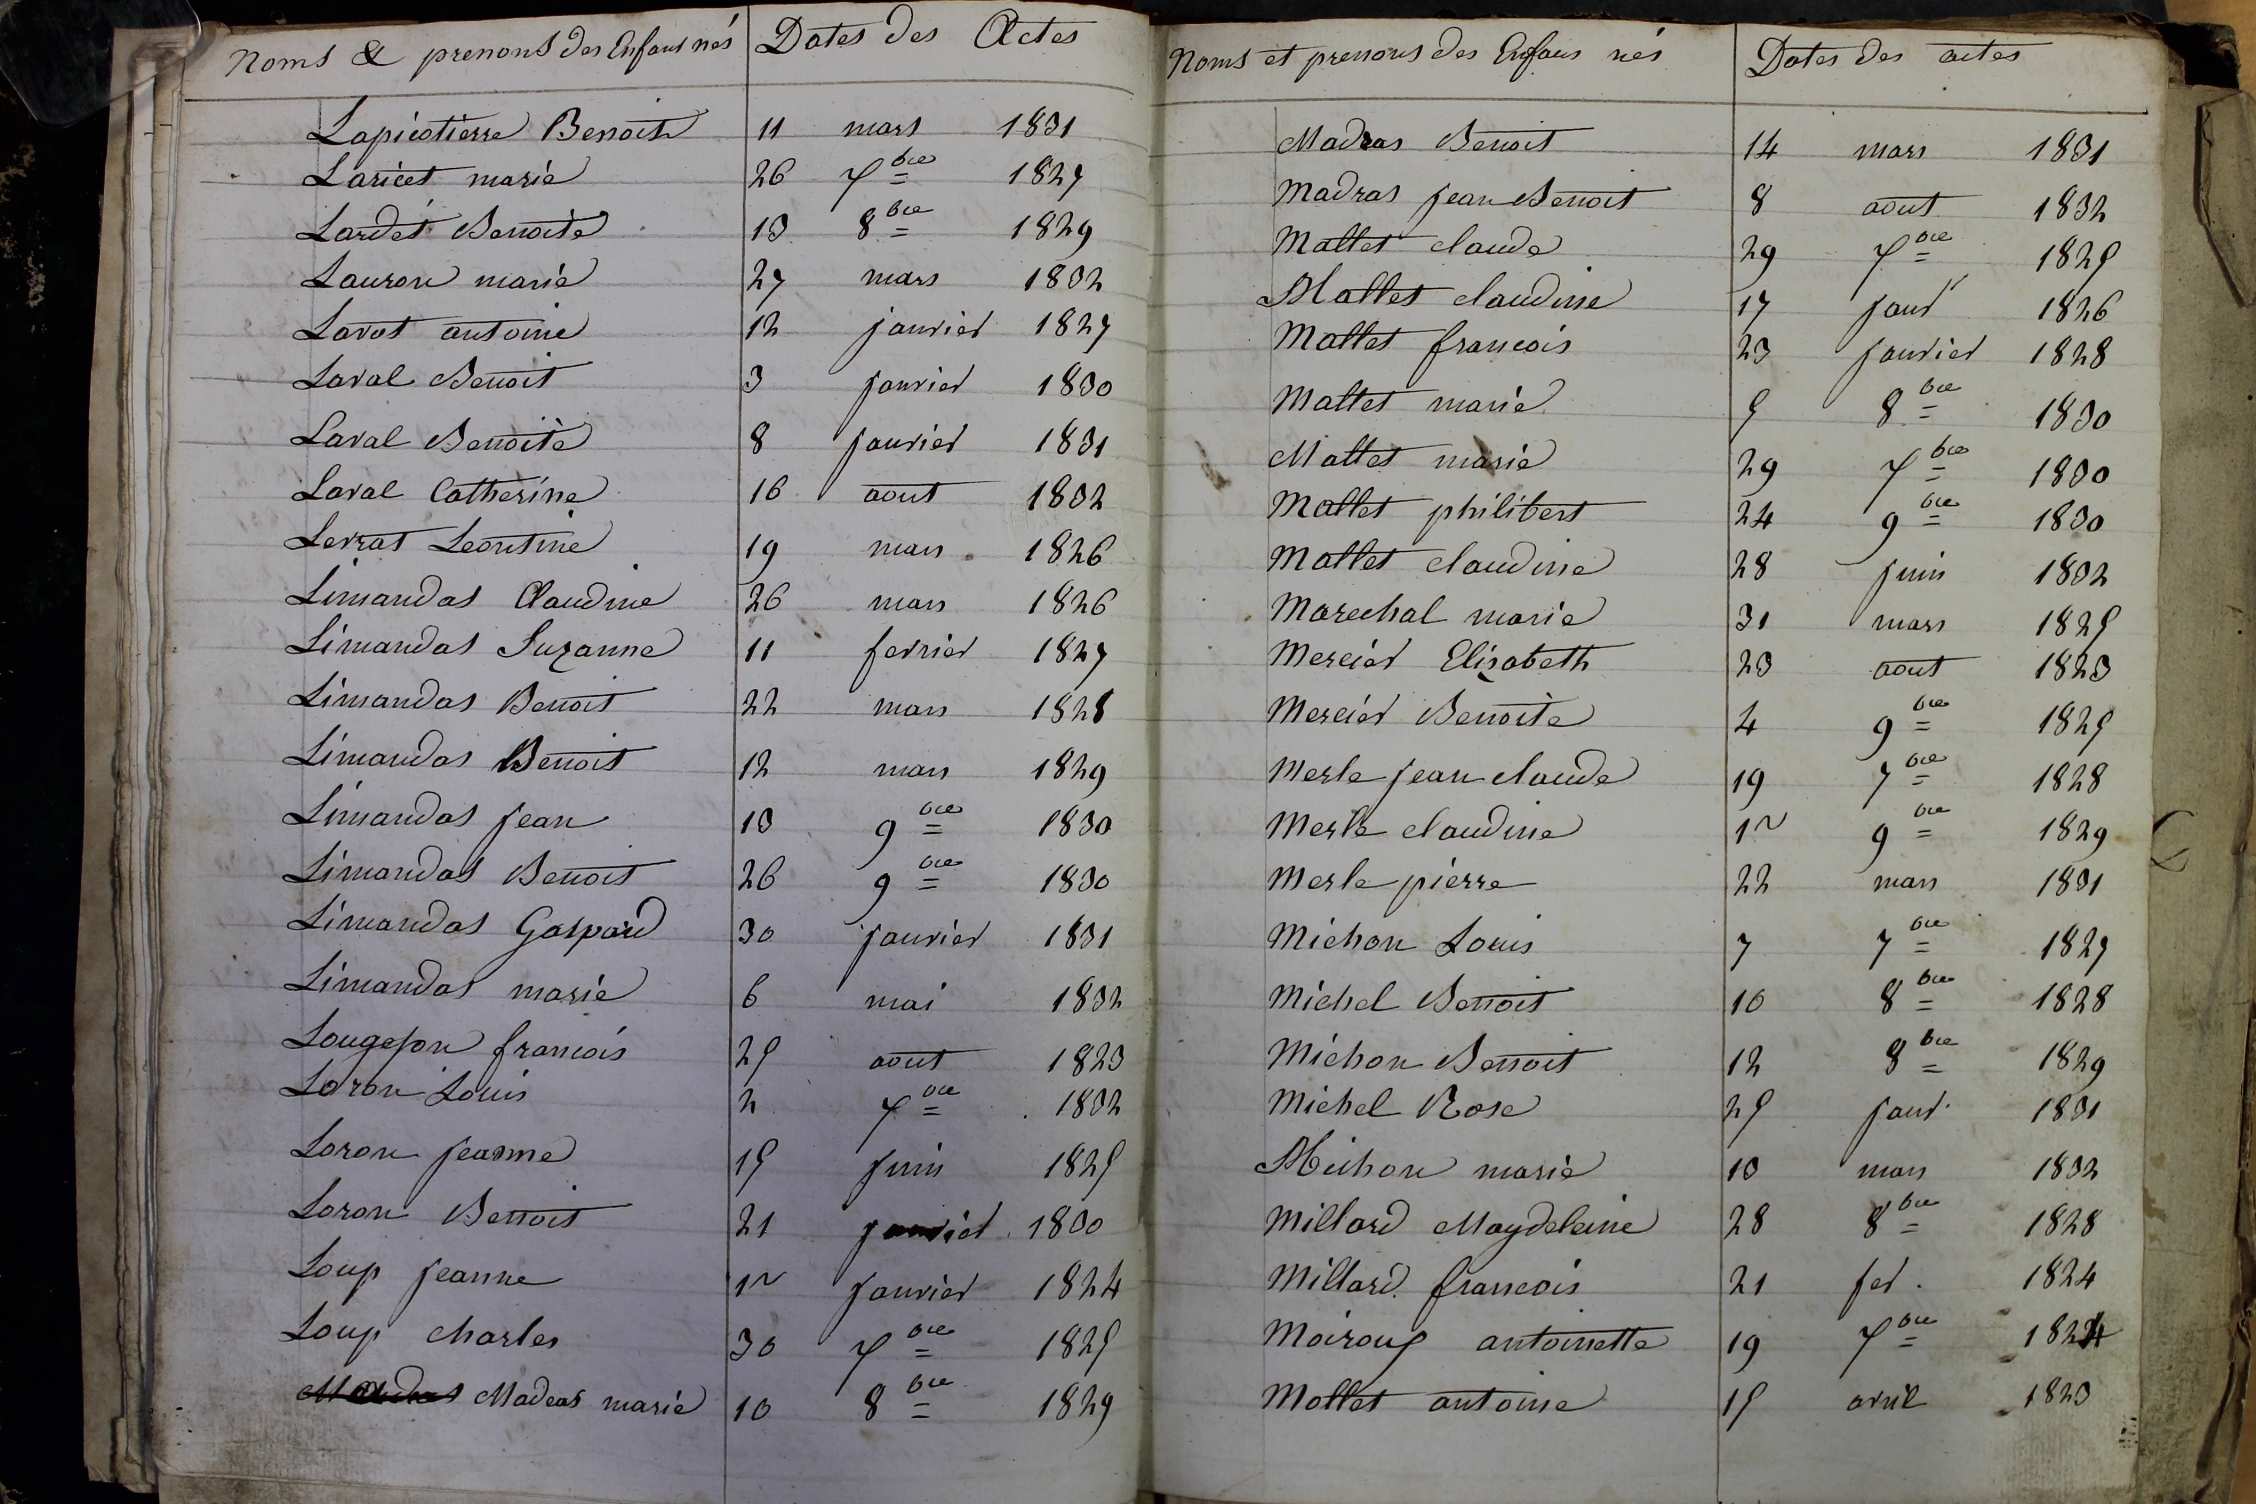 Noms & prenoms des Enfans nés Dates des Actes
Lapicotierre Benoit 11 mars 1831
Laricet marie 26 7bre 1827
Lardet Benoite 13 8bre 1829
Lauron marie 27 mars 1832
Lavot antoine 12 janvier 1827
Laval Benoit 3 janvier 1830
Laval Benoite 8 janvier 1831
Laval Catherine 16 aout 1832
Levrat Leontine 19 mars 1826
Limandas Claudine 26 mars 1826
Limandas Suzanne 11 fevrier 1827
Limandas Benoit 22 mars 1828
Limandas Benoit 12 mars 1829
Limandas jean 13 9bre 1830
Limandas Benoit 26 9bre 1830
Limandas Gaspard 30 janvier 1831
Limandas marie 6 mai 1832
Longefon francois 25 aout 1823
Loron Louis 2 7bre 1832
Loron jeanne 15 juin 1825
Loron Benoit 21 janvier 1830
Loup jeanne 1r janvier 1824
Loup charles 30 7bre 1825
Madras marie 10 8bre 1829
Noms et prenoms des Enfans nés Dates des actes
Madras Benoit 14 mars 1831
Madras jean Benoit 8 aout 1832
Mallet claude 29 7bre 1825
Mallet claudine 17 janr 1826
Mallet francois 23 janvier 1828
Mallet marie 5 8bre 1830
Mallet marie 29 7bre 1830
Mallet philibert 24 9bre 1830
Mallet claudine 28 juin 1832
Marechal marie 31 mars 1825
Mercier Elisabeth 23 aout 1823
Mercier Benoite 4 9bre 1825
Merle jean claude 19 7bre 1828
Merle claudine 1r 9bre 1829
Merle pierre 22 mars 1831
Michon Louis 7 7bre 1827
Michel Benoit 16 8bre 1828
Michon Benoit 12 8bre 1829
Michel Rose 25 janr 1831
Michon marie 10 mars 1832
Millard Magdeleine 28 8bre 1828
Millard francois 21 fev. 1824
Moiroux antoinette 19 7bre 1824
Mollet antoine 15 avril 1823